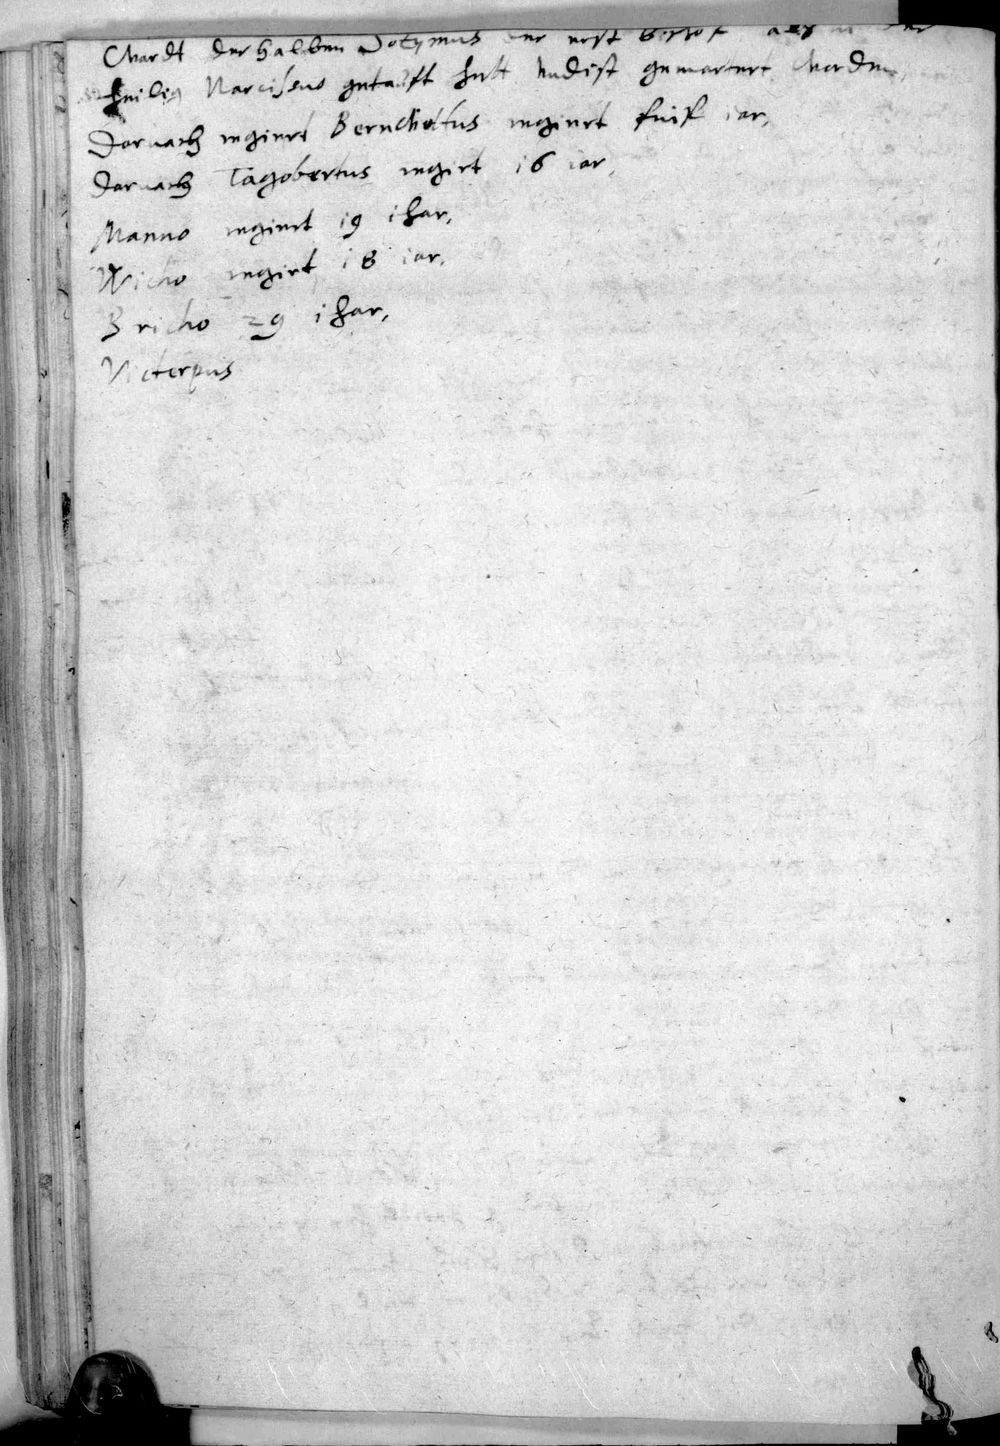 Wardt derhalben Sotzmus der erst Bischof
heilig Narcissus getaufft hett Vnd ist gemartert worden,
Darnach regiert Berncheltus regiert fuif iar,
darnach Tagobertus regirt 16 iar,
Manno regiert 19 ihar,
Wicho regirt 18 iar,
Bricho 29 ihar,
Victerpus